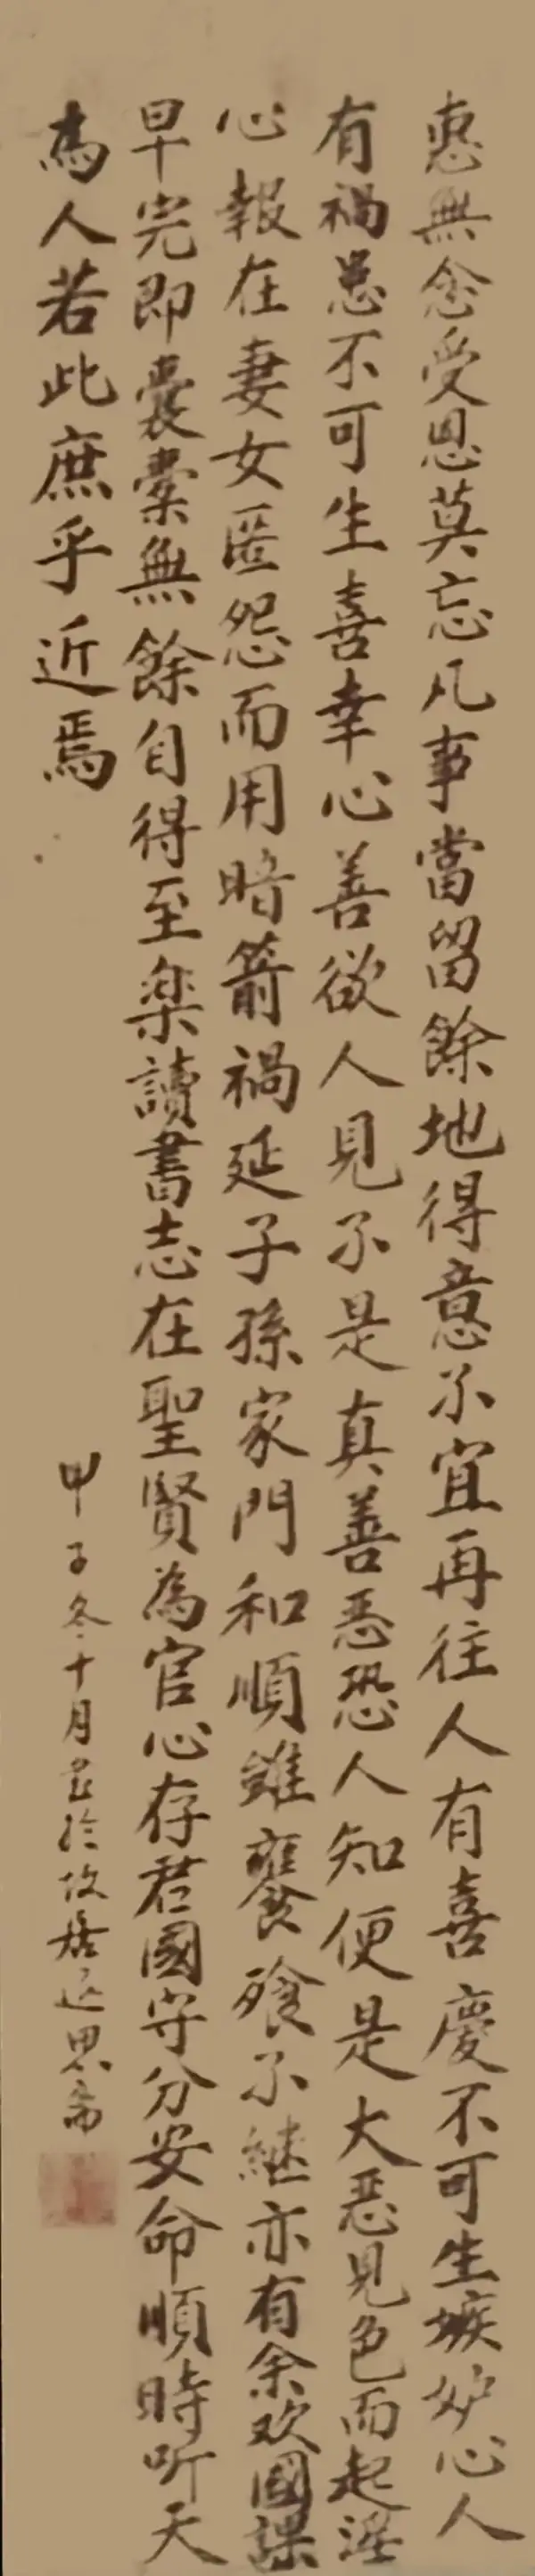 惠無念受恩莫忘凡事當留餘地得意不宜再往人有喜慶不可生嫉妒心人
有禍患不可生喜幸心善欲人見不是真善惡恐人知便是大惡見色而起淫
心報在妻女匿怨而用暗箭禍延子孫家門和順雖饔飧不継亦有余欢國課
早完即囊橐無餘自得至楽讀書志在聖賢為官心存君國守分安命順時听天
為人若此庶乎近焉
甲子冬十月书於故居返思斋